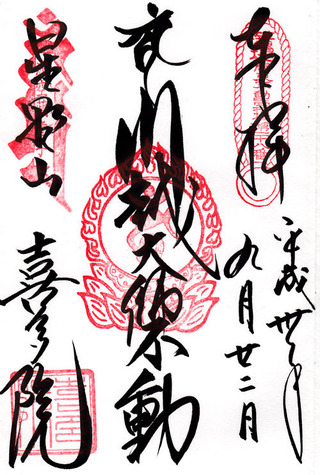 奉拝
平成卅年
九月廿二日
川越大師不動
星野山
喜多院